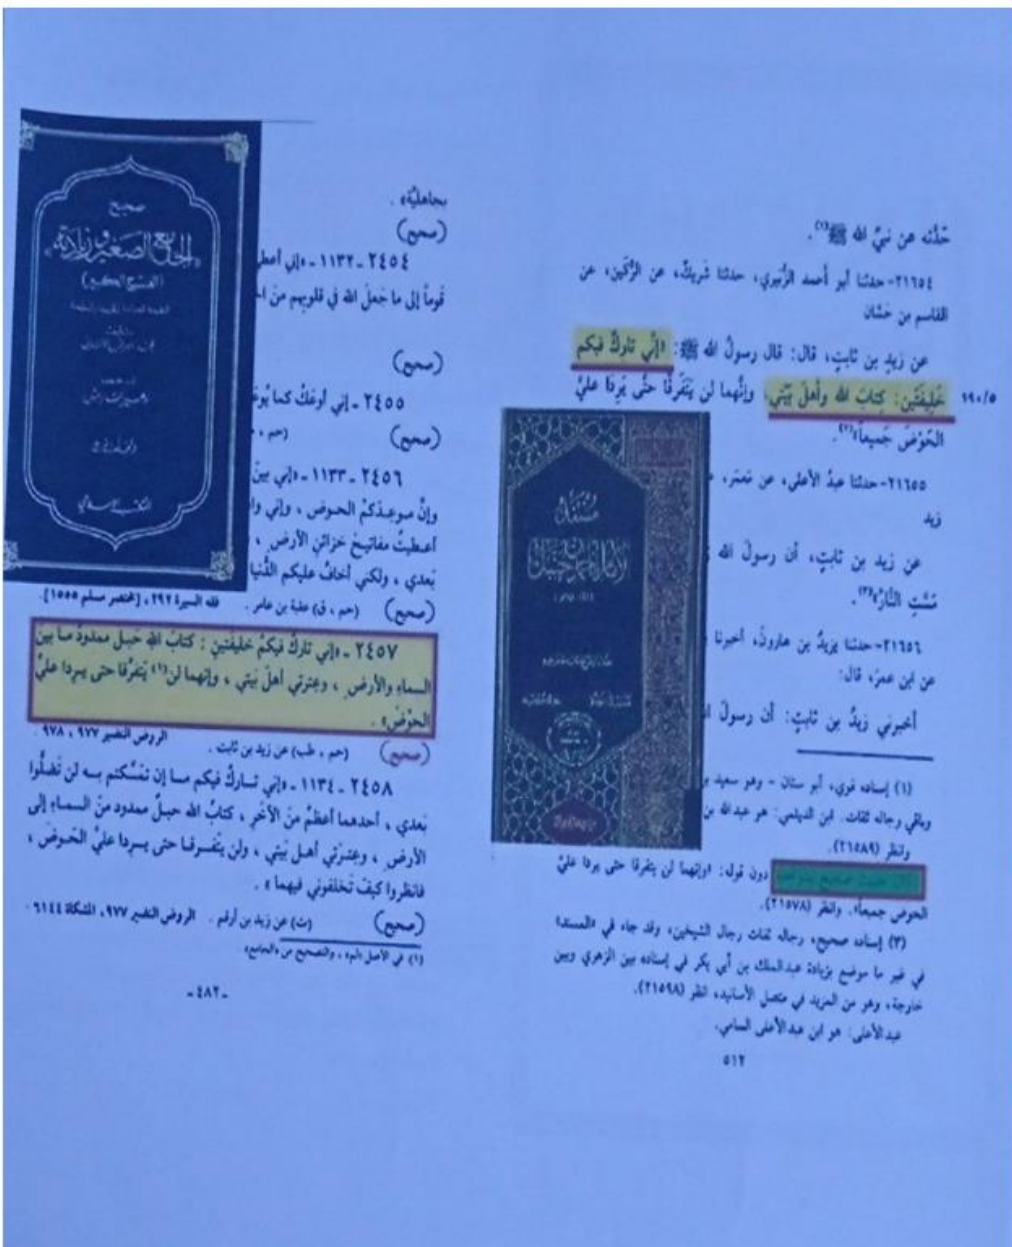 حدَّثه عن نبيِّ الله ﷺ(١).
٢١٦٥٤- حدثنا أبو أحمد الزُّبَيري، حدثنا شَريكٌ، عن الرُّكَين، عن
القاسم بن حَسَّان
عن زيدِ بن ثابتٍ، قال: قال رسولُ الله ﷺ: «إنِّي تارِكٌ فيكم
١٩٠/٥
خَلِيفَتَين: كِتابَ الله وأهلَ بَيْتي، وإنَّهما لن يَتَفَرَّقا حتَّى يَرِدَا عليَّ
الحَوْضَ جَميعاً»(٢).
٢١٦٥٥- حدثنا عبدُ الأعلى، عن مَعمَر،
زيد
عن زيد بن ثابتٍ، أن رسولَ الله
مَسَّتِ النَّارُ»(٣).
٢١٦٥٦- حدثنا يزيدُ بن هارونَ، أخبرنا
عن ابن عمرَ، قال:
أخبرني زيدُ بن ثابتٍ: أن رسولَ
(١) إسناده قوي، أبو سنان - وهو سعيد
وباقي رجاله ثقات. ابن الديلمي: هو عبدالله بن
وانظر (٢١٥٨٩).
دون قوله: «وإنهما لن يتفرقا حتى يردا عليَّ
الحوض جميعاً». وانظر (٢١٥٧٨).
(٣) إسناده صحيح، رجاله ثقات رجال الشيخين، وقد جاء في «المسند»
في غير ما موضع بزيادة عبدالملك بن أبي بكر في إسناده بين الزهري وبين
خارجة، وهو من المزيد في متصل الأسانيد، انظر (٢١٥٩٨).
عبدالأعلى: هو ابن عبدالأعلى السامي.
٥١٢
مُسْنَد
الإمام أحمد بن حنبل
بجاهليَّة» .
(صحيح)
٢٤٥٤ - ١١٣٢ - «إني
قوماً إلى ما جَعلَ الله في قلوبِهم منَ
(صحيح)
٢٤٥٥ - إني أُوعَكُ كما
(صحيح) (حم ،
٢٤٥٦ - ١١٣٣ - «إني بينَ
وإنَّ موعِدَكمُ الحوض ، وإني
أعطيتُ مفاتيحَ خزائنِ الأرضِ ،
بَعدي ، ولكني أخافُ عليكم الدُّنيا
(صحيح) (حم ، ق) عقبة بن عامر . فقه السيرة ٢٩٢، [مختصر مسلم ١٥٥٥].
٢٤٥٧ - «إني تاركٌ فيكُم خليفَتينِ : كتابُ اللهِ حَبلٌ ممدودٌ ما بينَ
السماءِ والأرضِ ، وعِترتي أهلَ بَيتي ، وإنهما لن(١) يَتفرَّقا حتى يرِدا عليَّ
الحَوْضَ» .
(صحيح) (حم ، طب) عن زيد بن ثابت . الروض النضير ٩٧٧ ، ٩٧٨ .
٢٤٥٨ - ١١٣٤ - «إني تاركٌ فيكم ما إن تمَسَّكتم به لن تَضلُّوا
بَعدي ، أحدهما أعظمُ منَ الآخَرِ ، كتابُ الله حبلٌ ممدود منَ السماءِ إلى
الأرضِ ، وعِترَتي أهلَ بَيتي ، ولن يتَفرقا حتى يرِدا عليَّ الحَوضَ ،
فانظروا كيفَ تَخلفوني فيهما» .
(صحيح) (ت) عن زيد بن أرقم . الروض النضير ٩٧٧، المشكاة ٦١٤٤ .
(١) في الأصل «لم» ، والتصحيح من «الجامع»
-٤٨٢-
صحيح
الجامع الصغير وزيادته
(الفتح الكبير)
المكتب الإسلامي